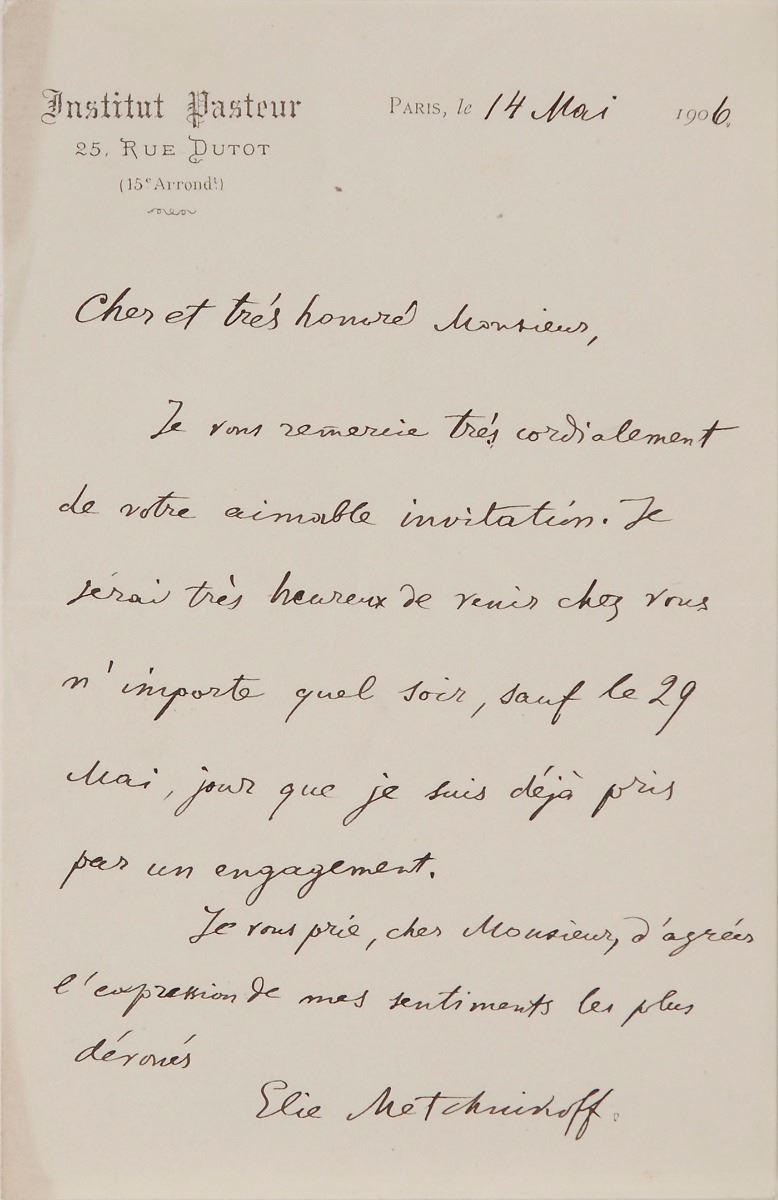 Institut Pasteur
25, Rue Dutot
(15e Arrondt)
Paris, le 14 Mai 1906.
Cher et trés honoré Monsieur,
Je vous remercie trés cordialement
de votre aimable invitation. Je
sérai très heureux de venir chez vous
n'importe quel soir, sauf le 29
Mai, jour que je suis déjà pris
par un engagement.
Je vous prie, cher Monsieur, d'agréer
l'expression de mes sentiments les plus
dévoués
Elie Metchnikoff.